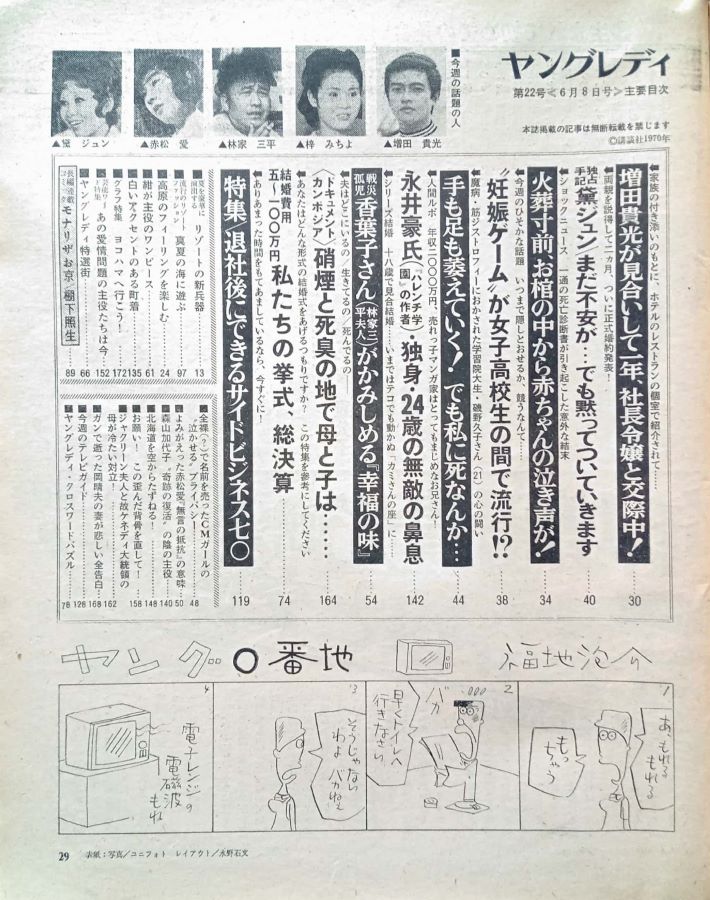 ヤングレディ
第22号≪6月8日号≫主要目次
本誌掲載の記事は無断転載を禁じます
©講談社1970年
■今週の話題の人
▲増田 貴光
▲梓 みちよ
▲林家 三平
▲赤松 愛
▲黛 ジュン
家族の付き添いのもとに、ホテルのレストランの個室で紹介されて……
増田貴光が見合いして一年、社長令嬢と交際中!
30
両親を説得して二ヵ月、ついに正式婚約発表!
独占手記 黛ジュン まだ不安が…でも黙ってついていきます
40
ショックニュース 一通の死亡診断書が引き起こした意外な結末
火葬寸前、お棺の中から赤ちゃんの泣き声が!
34
今週のひそやかな話題 いつまで隠しとおせるか、競うなんて……
“妊娠ゲーム”が女子高校生の間で流行!?
38
魔病・筋ジストロフィーにおかされた学習院大生・磯野久子さん(21)の心の闘い
手も足も萎えていく!でも私に死なんか…
44
人間ルポ 年収二〇〇〇万円、売れっ子マンガ家はとってもまじめなお兄さん!
永井豪氏(『ハレンチ学園』の作者)・独身・24歳の無敵の鼻息
142
シリーズ結婚 十八歳で見合結婚…いまではテコでも動かぬ「カミさんの座」に
戦災孤児 香葉子さん(林家三平夫人)がかみしめる『幸福の味』
54
夫はどこにいるの 生きてるの 死んでるの──
ドキュメント〈カンボジア〉硝煙と死臭の地で母と子は……
164
あなたはどんな形式の結婚式をあげるつもりですか? この特集を参考にしてください
結婚費用五〜一〇〇万円 私たちの挙式、総決算
74
ありあまった時間をもてあましているなら、今すぐに!
特集〈退社後にできるサイドビジネス七〇
119
夏を豪華に演出する リゾートの新兵器 13
流行のリゾートファッション 真夏の海に遊ぶ 97
高原のフィーリングを楽しむ 24
紺が主役のワンピース 61
白いアクセントのある町着 135
グラフ特集 ヨコハマへ行こう! 172
芸能ワイド特集 あの愛情問題の主役たちは今… 152
ヤングレディ特選街 66
長編連載コミック モナリザお京/棚下照生 89
全裸(?)で名前を売ったCMガールの“泣かせる”プライバシー 48
よみがえった赤松愛“無言の抵抗”の意味 50
森山加代子“奇跡の復活”の陰の主役 140
北海道を空からたずねる! 148
お願い! この歪んだ背骨を直して! 158
ジャクリーン夫人と故ケネディ大統領の母が冷たい対立! 162
ガンで逝った岡晴夫の妻が悲しい全告白 168
今週のテレビガイド 128
ヤングレディ・クロスワードパズル 78
ヤング〇番地
福地泡介
1
あ、もれる もれる
もっちゃう
2
バカ
早くトイレへ行きなさい
3
そうじゃないわよ バカねェ
4
電子レンジの電磁波もれ
29
表紙:写真/ユニフォト レイアウト/水野石文